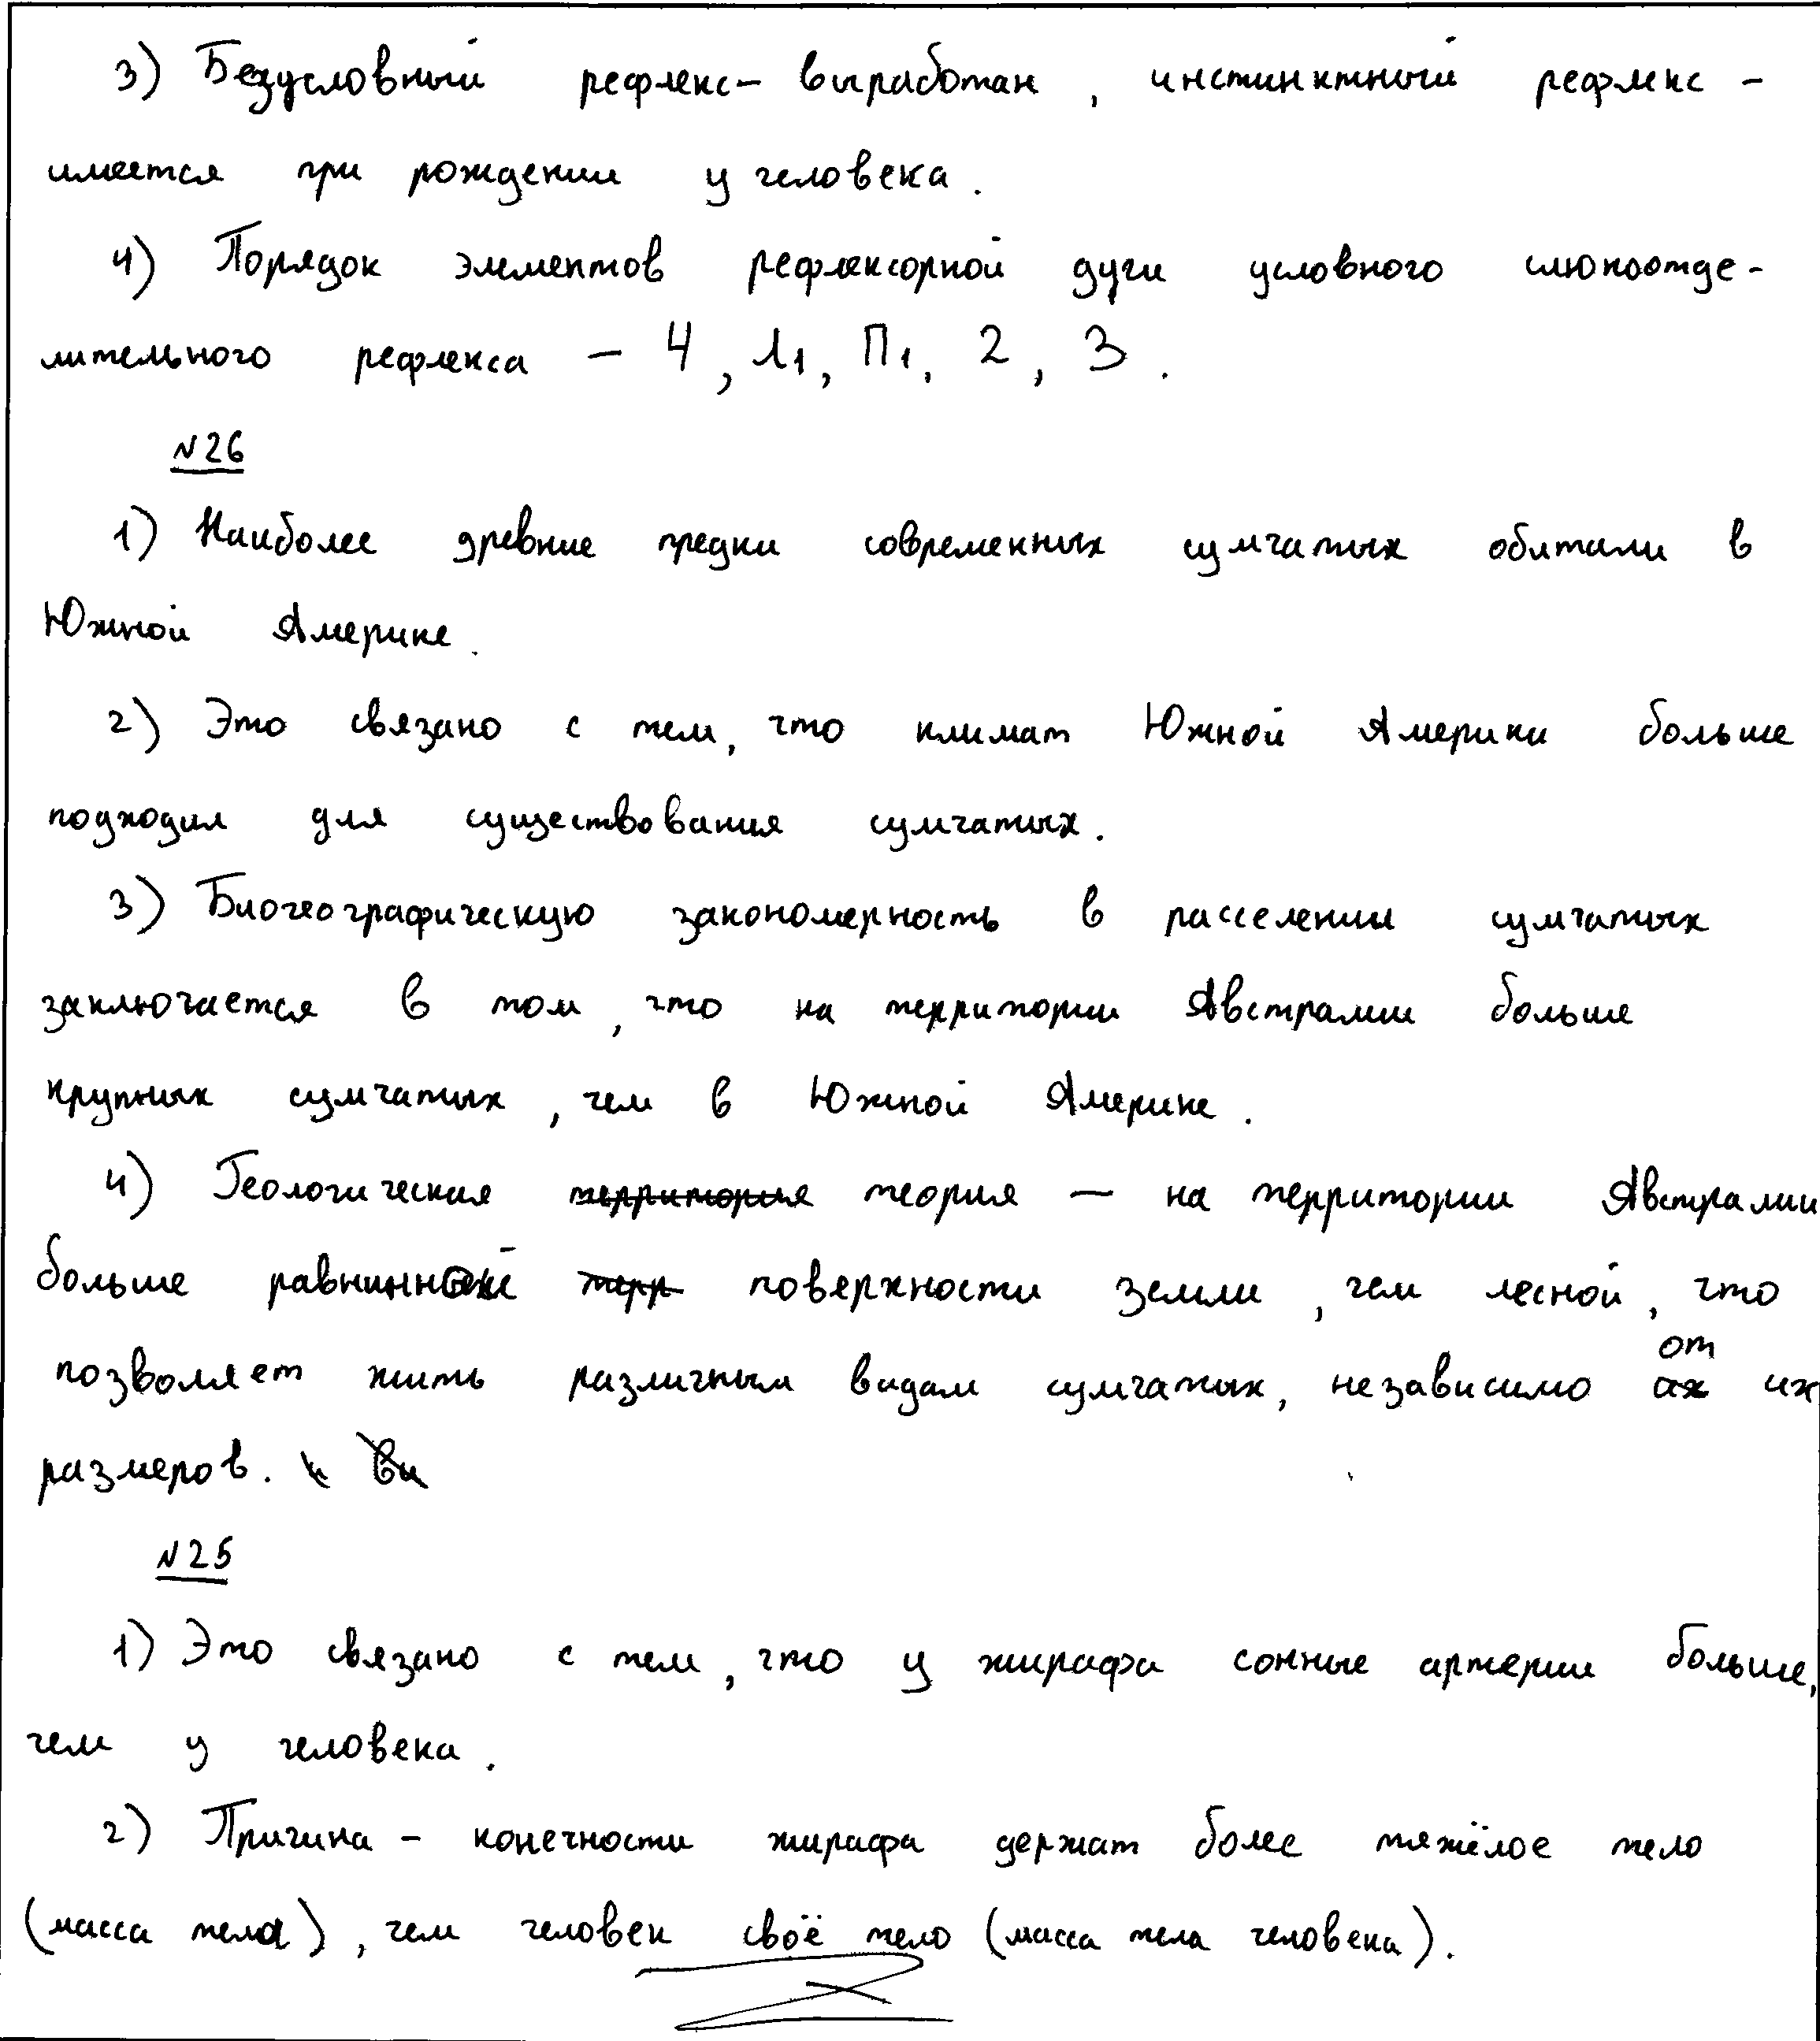 3) Безусловный рефлекс - выработан, инстинктный рефлекс -
имеется при рождении у человека.
4) Порядок элементов рефлексорной дуги условного слюноотде-
лительного рефлекса - 4, Л1, П1, 2, 3.
N26
1) Наиболее древние предки современных сумчатых обитали в
Южной Америке.
2) Это связано с тем, что климат Южной Америки больше
подходил для существования сумчатых.
3) Биогеографическую закономерность в расселении сумчатых
заключается в том, что на территории Австралии больше
крупных сумчатых, чем в Южной Америке.
4) Геологическая территория теория - на территории Австралии
больше равнинной терр поверхности земли, чем лесной, что
позволяет жить различным видам сумчатых, независимо от их
размеров.
N25
1) Это связано с тем, что у жирафа сонные артерии больше,
чем у человека.
2) Причина - конечности жирафа держат более тяжёлое тело
(масса тела), чем человек своё тело (масса тела человека).